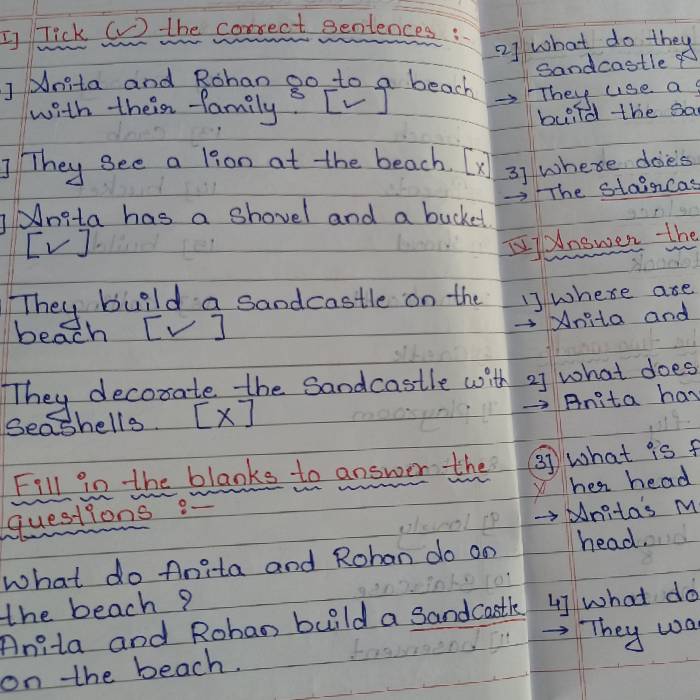 I] Tick (✓) the correct sentences :-
] Anita and Rohan go to a beach
with their family. [✓]
] They see a lion at the beach. [x]
] Anita has a shovel and a bucket.
[✓]
They build a sandcastle on the
beach [✓]
They decorate the sandcastle with
seashells. [x]
Fill in the blanks to answer the
questions :-
What do Anita and Rohan do on
the beach ?
Anita and Rohan build a sandcastle
on the beach.
2] What do they
sandcastle ?
→ They use a
build the
3] Where does
→ The
IV] Answer the
1] Where are
→ Anita and
2] What does
→ Anita has
3] What is
her head
→ Anita's
head.
4] What do
→ They